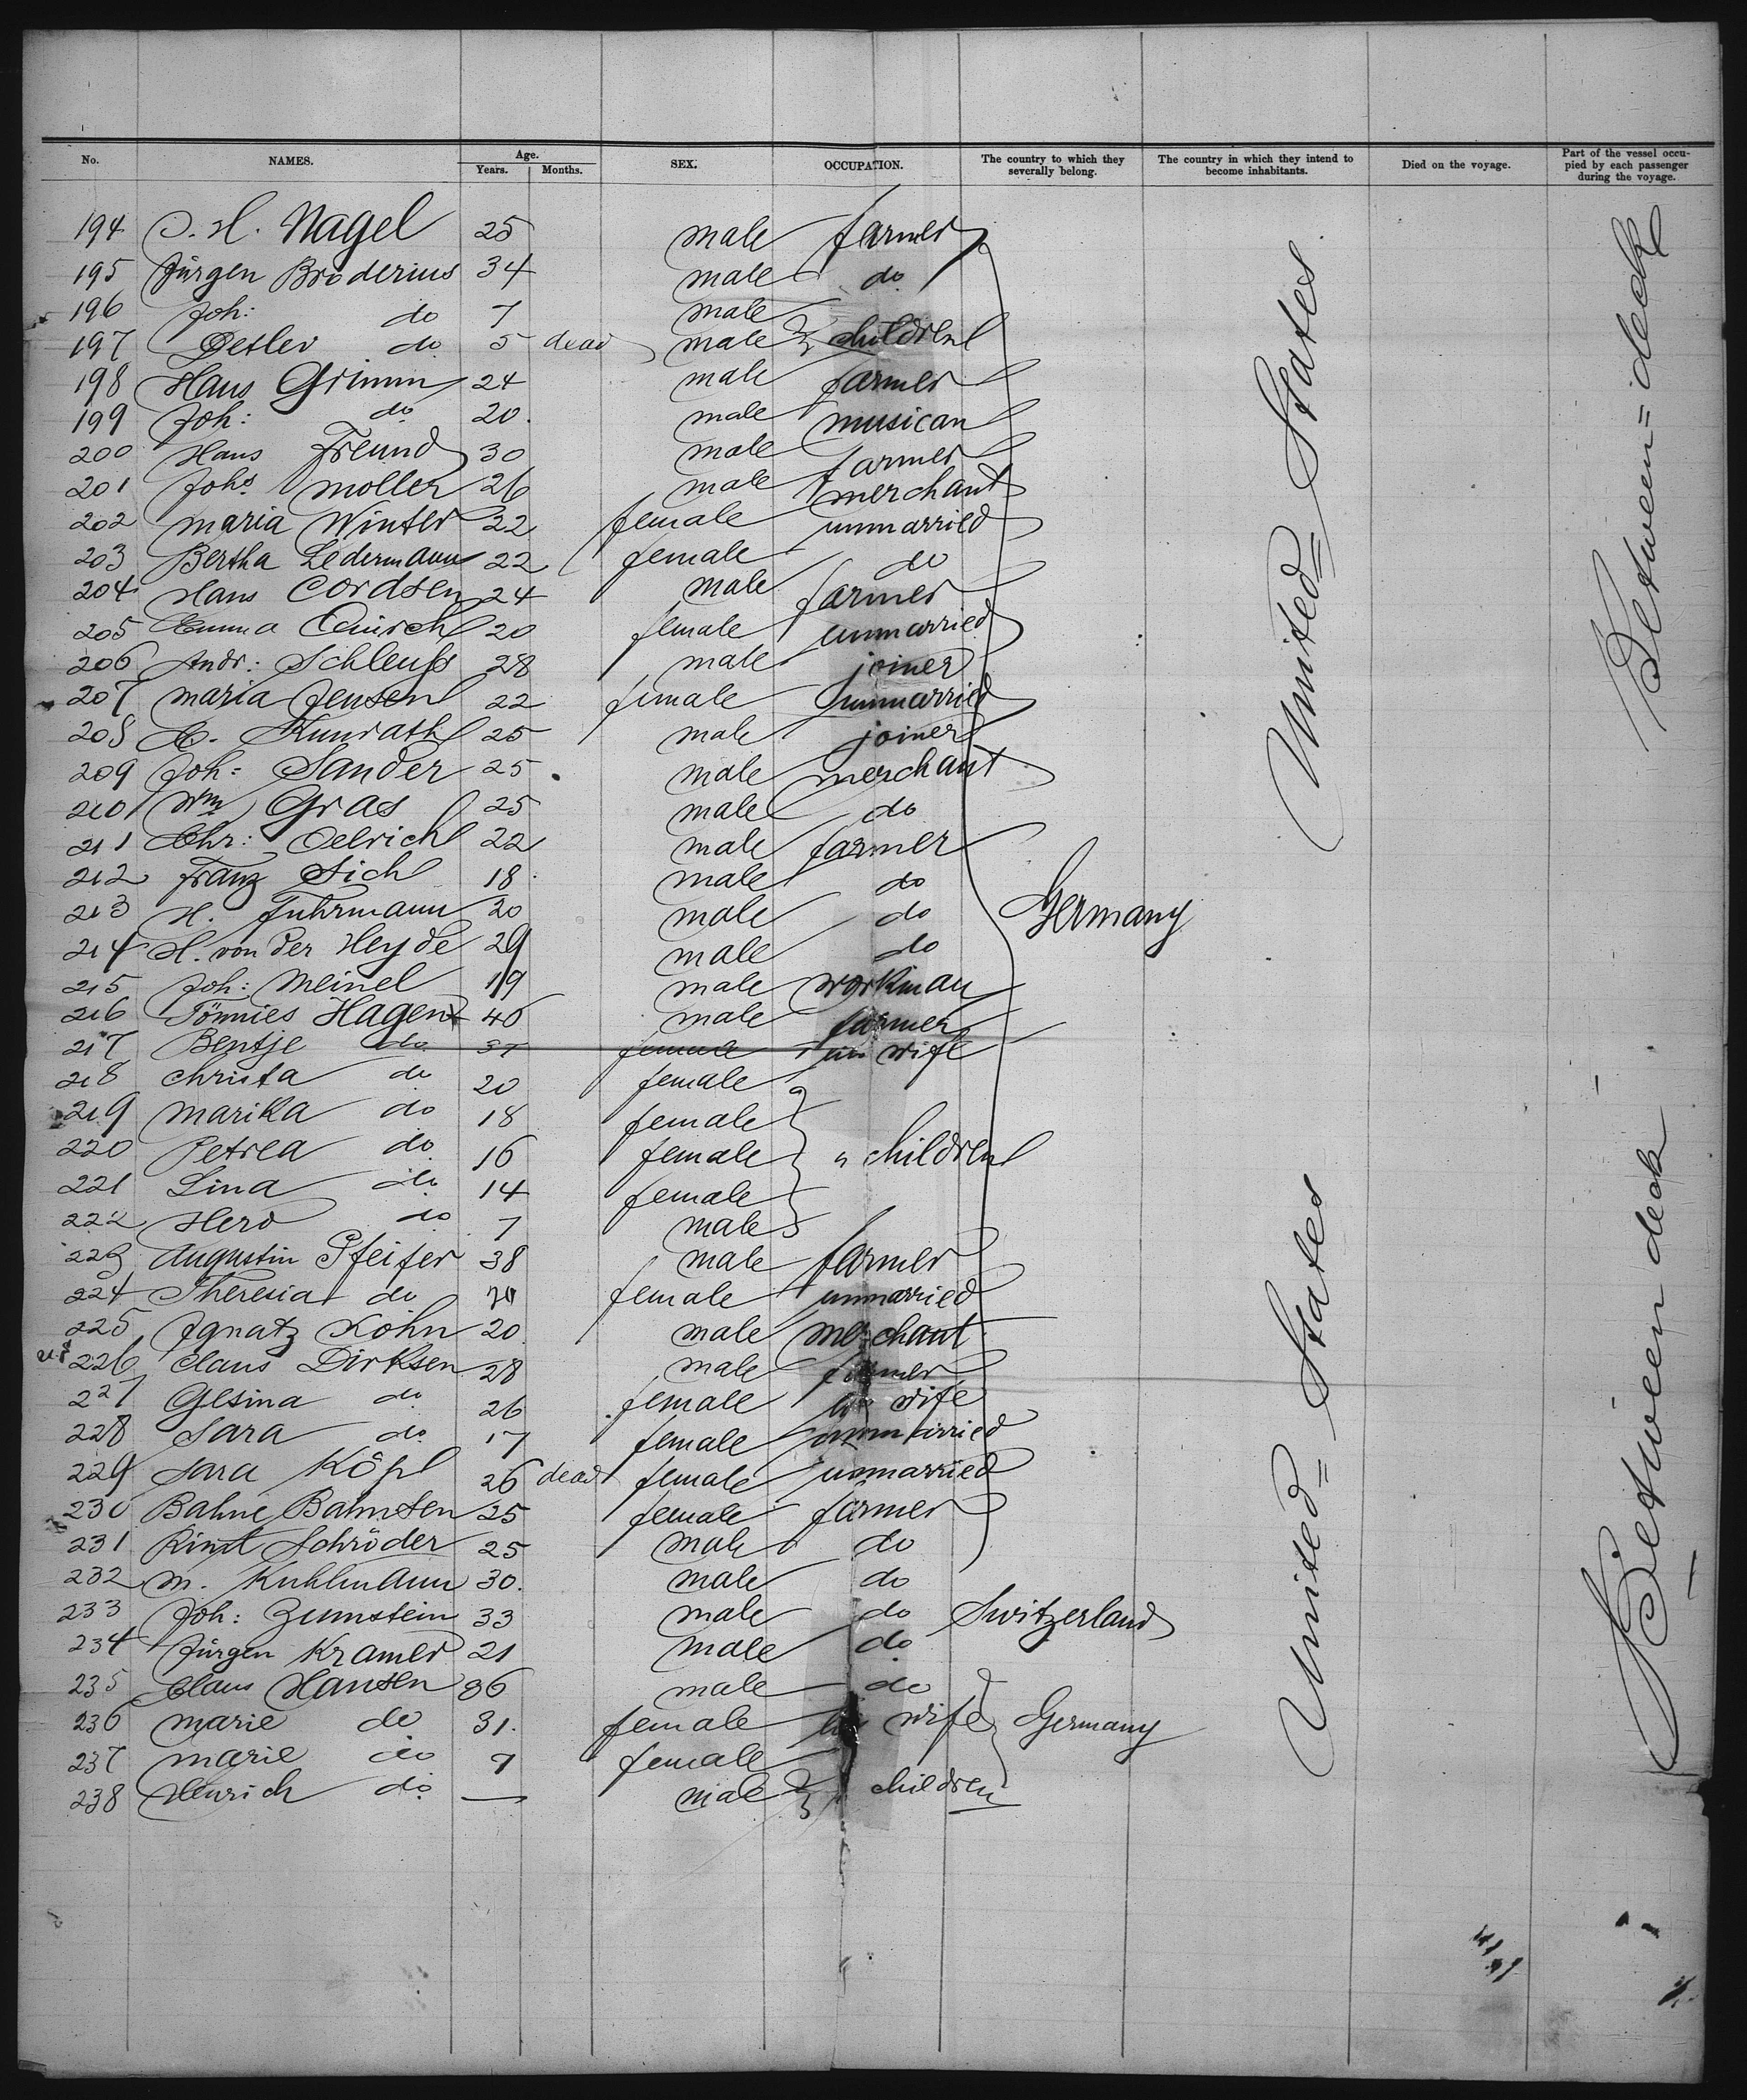 No. NAMES. Age. Years. Months. SEX. OCCUPATION. The country to which they severally belong. The country in which they intend to become inhabitants. Died on the voyage. Part of the vessel occupied by each passenger during the voyage.
194 H. Nagel 25 male farmer
195 Jürgen Broderius 34 male do
196 Joh: do 7 male
197 Detlev do 5 dead male children
198 Hans Grimm 24 male farmer
199 Joh: do 20 male musican
200 Hans Freund 30 male farmer
201 Johs Moller 26 male merchant
202 Maria Winter 22 female unmarried
203 Bertha Ledermann 22 female do
204 Hans Cordsen 24 male farmer
205 Emma 20 female unmarried
206 Andr: Schleuss 28 male joiner
207 Maria Jensen 22 female unmarried
208 Kunrath 25 male joiner
209 Joh: Sander 25 male merchant
210 Wm Gras 25 male do
211 Chr: Oelrich 22 male farmer
212 Franz Sich 18 male do
213 H. Fuhrmann 20 male do
214 H. von der Heyde 29 male do
215 Joh: Meinel 19 male workman
216 Tönnies Hagen 46 male farmer
217 Bentje do 37 female wife
218 Christa do 20 female
219 Marika do 18 female
220 Petrea do 16 female " children
221 Lina do 14 female
222 Hero do 7 male
223 Augustin Pfeifer 38 male farmer
224 Theresia do female unmarried
225 Ignatz Kohn 20 male merchant
226 Claus Dirksen 28 male farmer
227 Gesina do 26 female his wife
228 Sara do 17 female unmarried
229 Sara Köpl 26 dead female unmarried
230 Bahne Bahnsen 25 female farmer
231 Schröder 25 male do
232 M. Kuhlmann 30 male do
233 Joh: Zumstein 33 male do Switzerland
234 Jürgen Kramer 21 male do
235 Claus Hansen 36 male do
236 Marie do 31 female his wife Germany
237 Marie do 7 female
238 Henrich do — male children
Germany
United = States
United = States
Between = deck
Between deck